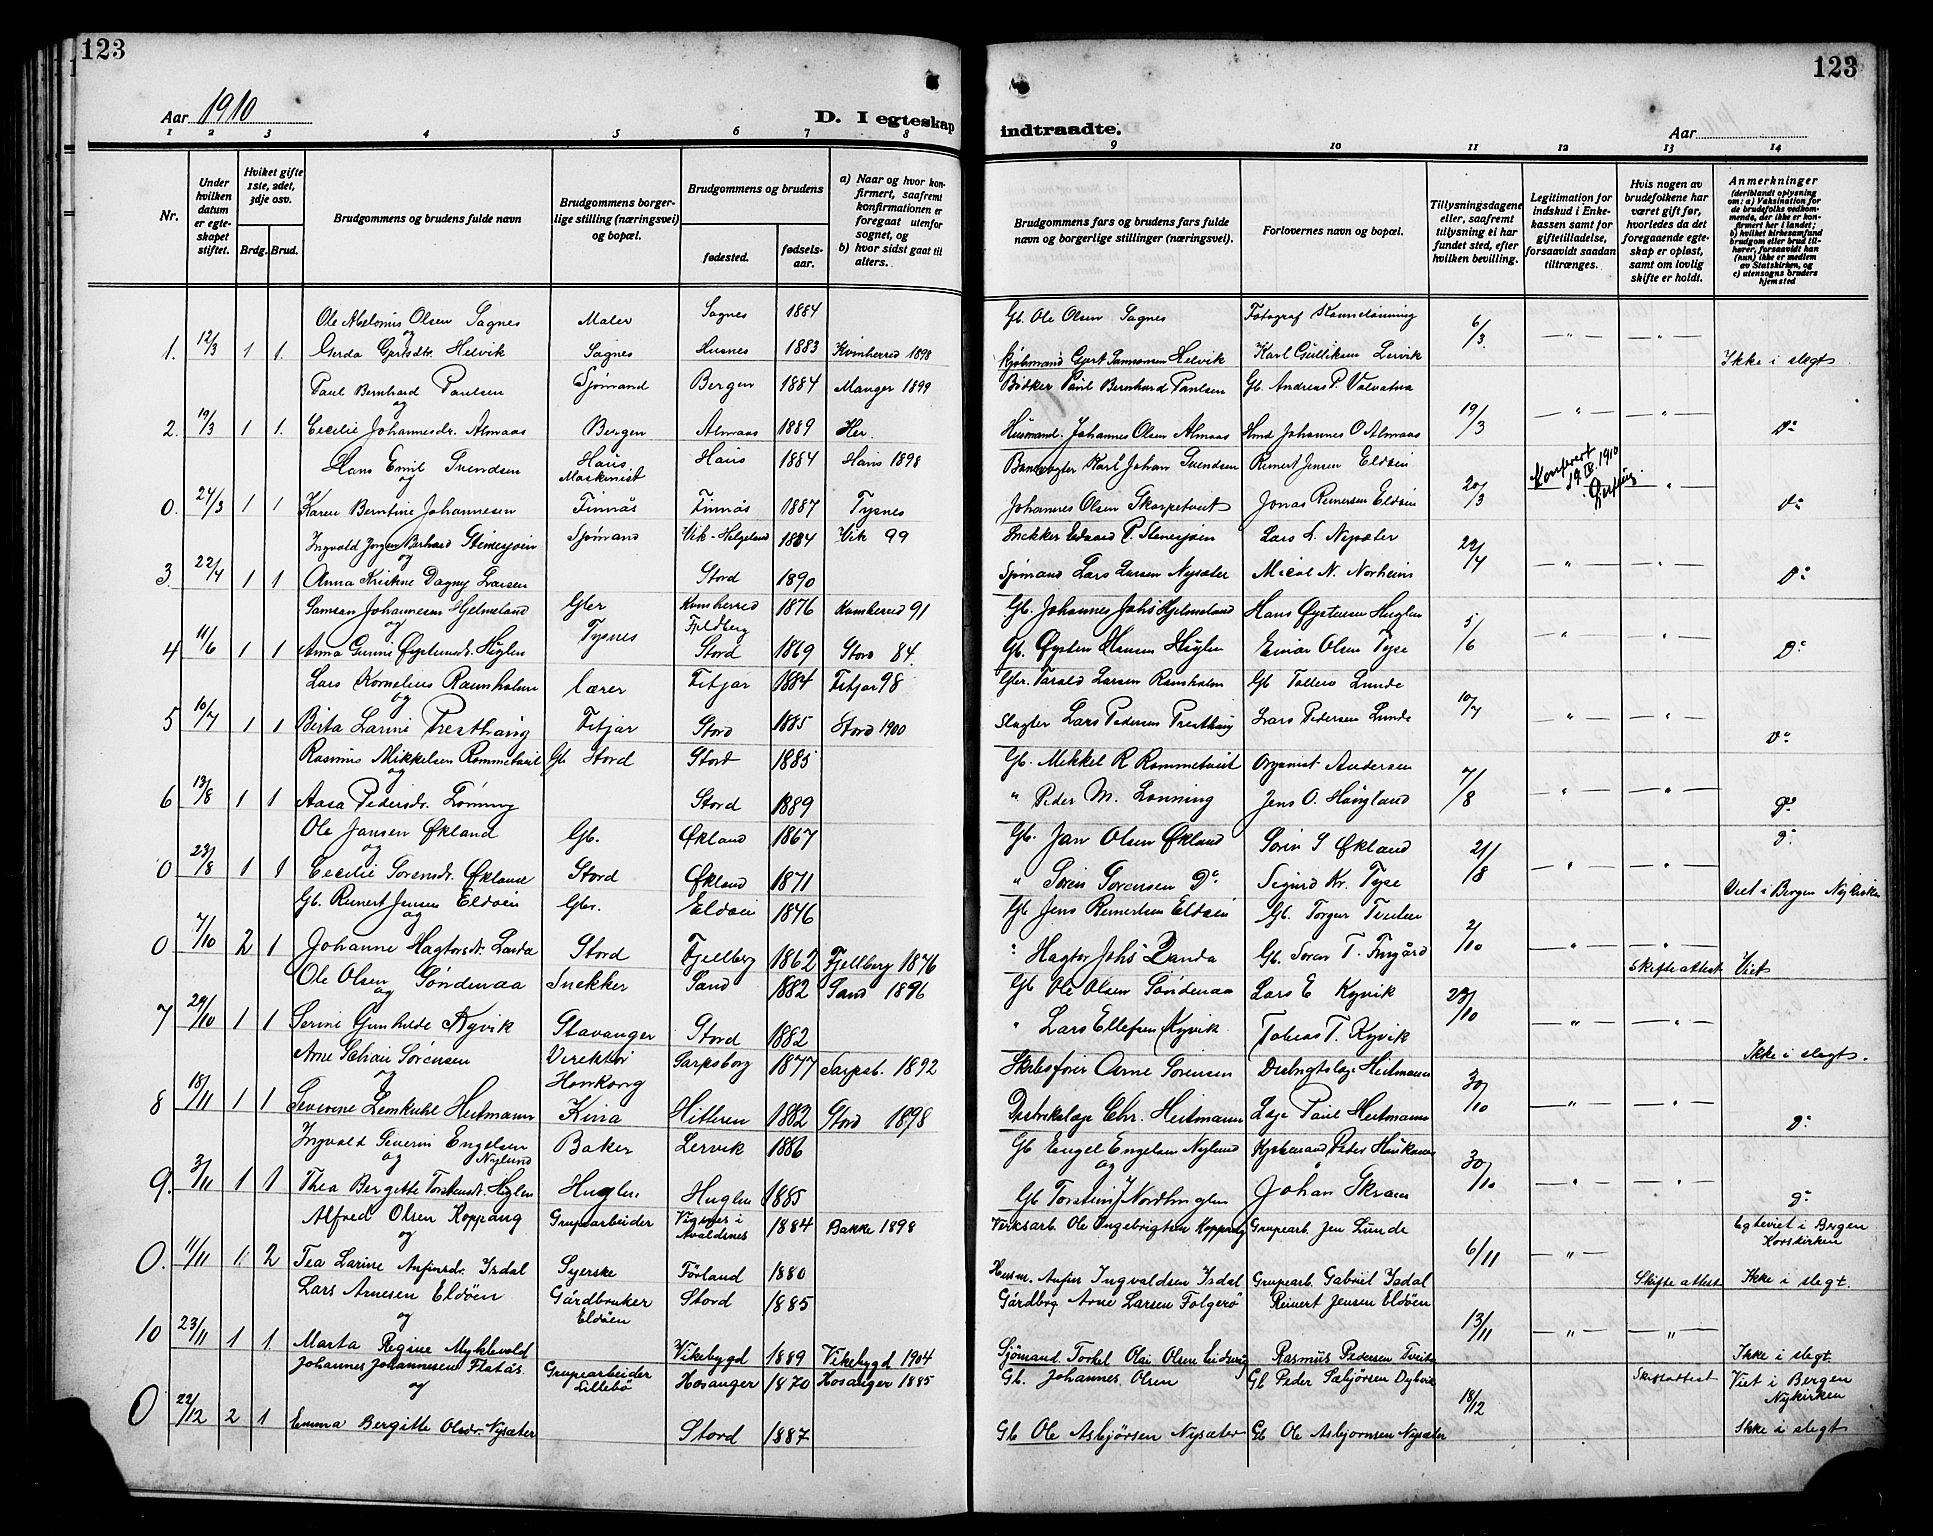 123
Aar 1910
D. I egteskap
1 2 3 4 5 6 7 8
Nr.
Under hvilken datum er egteskapet stiftet.
Hvilket gifte 1ste, 2det, 3dje osv.
Brdg. Brud.
Brudgommens og brudens fulde navn
Brudgommens borgerlige stilling (næringsvei) og bopæl.
Brudgommens og brudens
fødested.
fødselsaar.
a) Naar og hvor konfirmert, saafremt konfirmationen er foregaat utenfor sognet, og
b) hvor sidst gaat til alters.
Ole Abelonius Olsen Sagnes Maler Sagnes 1884
og
1. 12/3 1 1. Gerda Gjertsdtr. Helvik Sagnes Husnes 1883 Kvinherred 1898
Paul Bernhard Paulsen Sjømand Bergen 1884 Manger 1899
og
2. 19/3 1 1. Cecilie Johannesdr. Almaas Bergen Almaas 1889 Her.
Hans Emil Svendsen Haus Maskinist Haus 1884 Haus 1898
og
0. 24/3 1 1 Karen Berntine Johannesen Finnås Finnås 1887 Tysnes
Ingvald Jørgen Berhard Stenesjøen Sjømand Vik-Helgeland 1884 Vik 99
og
3. 22/4 1 1 Anna Kristine Dagny Larsen Stord 1890
Samson Johannesen Hjelmeland Gbr Kvinherred 1876 Kvinherred 91
og Tysnes Fjeldberg
4 11/6 1 1 Anna Gurine Øystensdr. Huglen Stord 1869 Stord 84.
Lars Kornelius Raunholm Lærer Fitjar 1884 Fitjar 98
og
5 10/7 1 1 Berta Larine Presthaug Fitjar Stord 1885 Stord 1900
Rasmus Mikkelsen Rommetveit Gb Stord Stord 1885
og
6 13/8 1 1 Aasa Pedersdr. Lønning Stord 1889
Ole Jansen Økland Gb. Økland 1867
og
0 23/8 1 1 Cecilie Sørensdr. Økland Stord Økland 1871
Gb. Reinert Jensen Eldøen Gbr. Eldøen 1846
og
0 7/10 2 1 Johanne Hagtorsdr. Landa Stord Fjellberg 1862 Fjellberg 1876
Ole Olsen Søndenaa Snekker Sand 1882 Sand 1896
og
7 29/10 1 1 Serine Gunhilde Kyvik Stavanger Stord 1882
Arne Schau Sørensen Direktør Sarpsborg 1877 Sarpsb. 1892
og Honkong
8 18/11 1 1 Severine Lemkuhl Heitmann Kina Hitteren 1882 Stord 1898
Ingvald Severin Engelsen Nylund Baker Lervik 1886
og
9. 3/11 1 1 Thea Bergitte Torstensdr. Huglen Huglen Huglen 1885
Alfred Olsen Koppang Grupearbeider Vignes i Avaldsnes 1884 Bakke 1898
og
0. 11/11 1. 2 Tea Larine Anfinsdr. Isdal Syerske Førland 1880
Lars Arnesen Eldøen Gårdbruker Eldøen Stord 1885
og
10 23/11 1 1 Marta Regine Myklevold Vikebygd 1889 Vikebygd 1904
Johannes Johannesen Flatås. Grupearbeider Lillebø Hosanger 1870 Hosanger 1885
og
0 22/12 2 1 Emma Bergitte Olsdr. Nysæter Stord 1887
123
indtraadte.
Aar
9 10 11 12 13 14
Brudgommens fars og brudens fars fulde navn og borgerlige stillinger (næringsvei).
Forlovernes navn og bopæl.
Tillysningsdagene eller, saafremt tillysning ei har fundet sted, efter hvilken bevilling.
Legitimation for indskud i Enkekassen samt for giftetilladelse, forsaavidt saadan tiltrænges.
Hvis nogen av brudefolkene har været gift før, hvorledes da det foregaaende egteskap er opløst, samt om lovlig skifte er holdt.
Anmerkninger (deriblandt oplysning om: a) Vaksination for de brudefolks vedkommende, der ikke er konfirmert her i landet; b) hvilket kirkesamfund brudgom eller brud tilhører, forsaavidt han (hun) ikke er medlem av Statskirken, og c) utensogns bruders hjemsted
Gb. Ole Olsen Sagnes Fotograf
Karl Gulliksen Lervik 6/3. — " — — " — Ikke i slegt
Bødker Paul Bernhard Paulsen Gb. Andreas P. Valvatna
Husmand. Johannes Olsen Almaas Hmd Johannes O Almaas 19/3 — " — — " — Do
Banevogter Karl Johan Svendsen Reinert Jensen Eldøen
Johannes Olsen Skarpetveit Jonas Reinertsen Eldøen 20/3 19.IV.1910 — " — Do
Snekker Edvard P. Stenesjøen Lars L. Nysæter
Sjømand Lars Larsen Nysæter Micol N. Norheim 22/4 — " — — " — Do
Gb. Johannes Johs Hjelmeland Hans Øystensen Huglen
Gb. Øysten Hansen Huglen Einar Olsen Tyse 5/6 — " — — " — Do
Gbr. Tarald Larsen Raunholm Gb Tollew Lunde
Slagter Lars Pedersen Presthaug Lars Pedersen Lunde 10/7 — " — — " — Do
Gb. Mikkel R Rommetveit Organist Andersen
" Peder M. Lønning Jens O. Haugland 7/8 — " — — " — Do
Gb. Jan Olsen Økland Søren S Økland Do
" Søren Sørensen Do Sigurd Kr. Tyse 21/8 — " — — " — Viet i Bergen Nykirken
Gb Jens Reinertsen Eldøen Gb. Torger Tveiten
" Hagtor Johs Landa Gb. Søren T. Frugård 2/10 — " — — " — Skifteattest Viet
Gb Ole Olsen Søndenaa Lars E Kyvik
" Lars Ellefsen Kyvik Tobias T. Kyvik 23/10 — " — — " — Ikke i slegt.
Skibsfører Arne Sørensen Distrigtslæge Heitmann
Distriktslæge Chr. Heitmann Læge Paul Heitmann 30/10 — " — — " — Do
Gb Engel Engelsen Nylund Kjøbmand Peder Haukanes
og
Gb Torstein J Nordhuglen Johan Skram 30/10 — " — — " — Do
Verksarb. Ole Ingebrigtsen Koppang Grupearb. Jen Lunde Egteviet i Bergen Korskirken
6/11 — " —
Husm. Anfin Ingvaldsen Isdal Grupearb. Gabriel Isdal Skifteattest Ikke i slegt.
Gårdbrg Arne Larsen Folgerø Reinert Jensen Eldøen
13/11 — " — — " —
Sjømand. Torkel Olai Olsen Rasmus Pedersen Tveita Ikke i slegt
Gb. Johannes Olsen Gb Peder Sæbjørsen Dybvik Skifteattest Viet i Bergen Nykirken
18/12
Gb Ole Asbjørsen Nysæter Gb Ole Asbjørnsen Nysæter Ikke i slegt